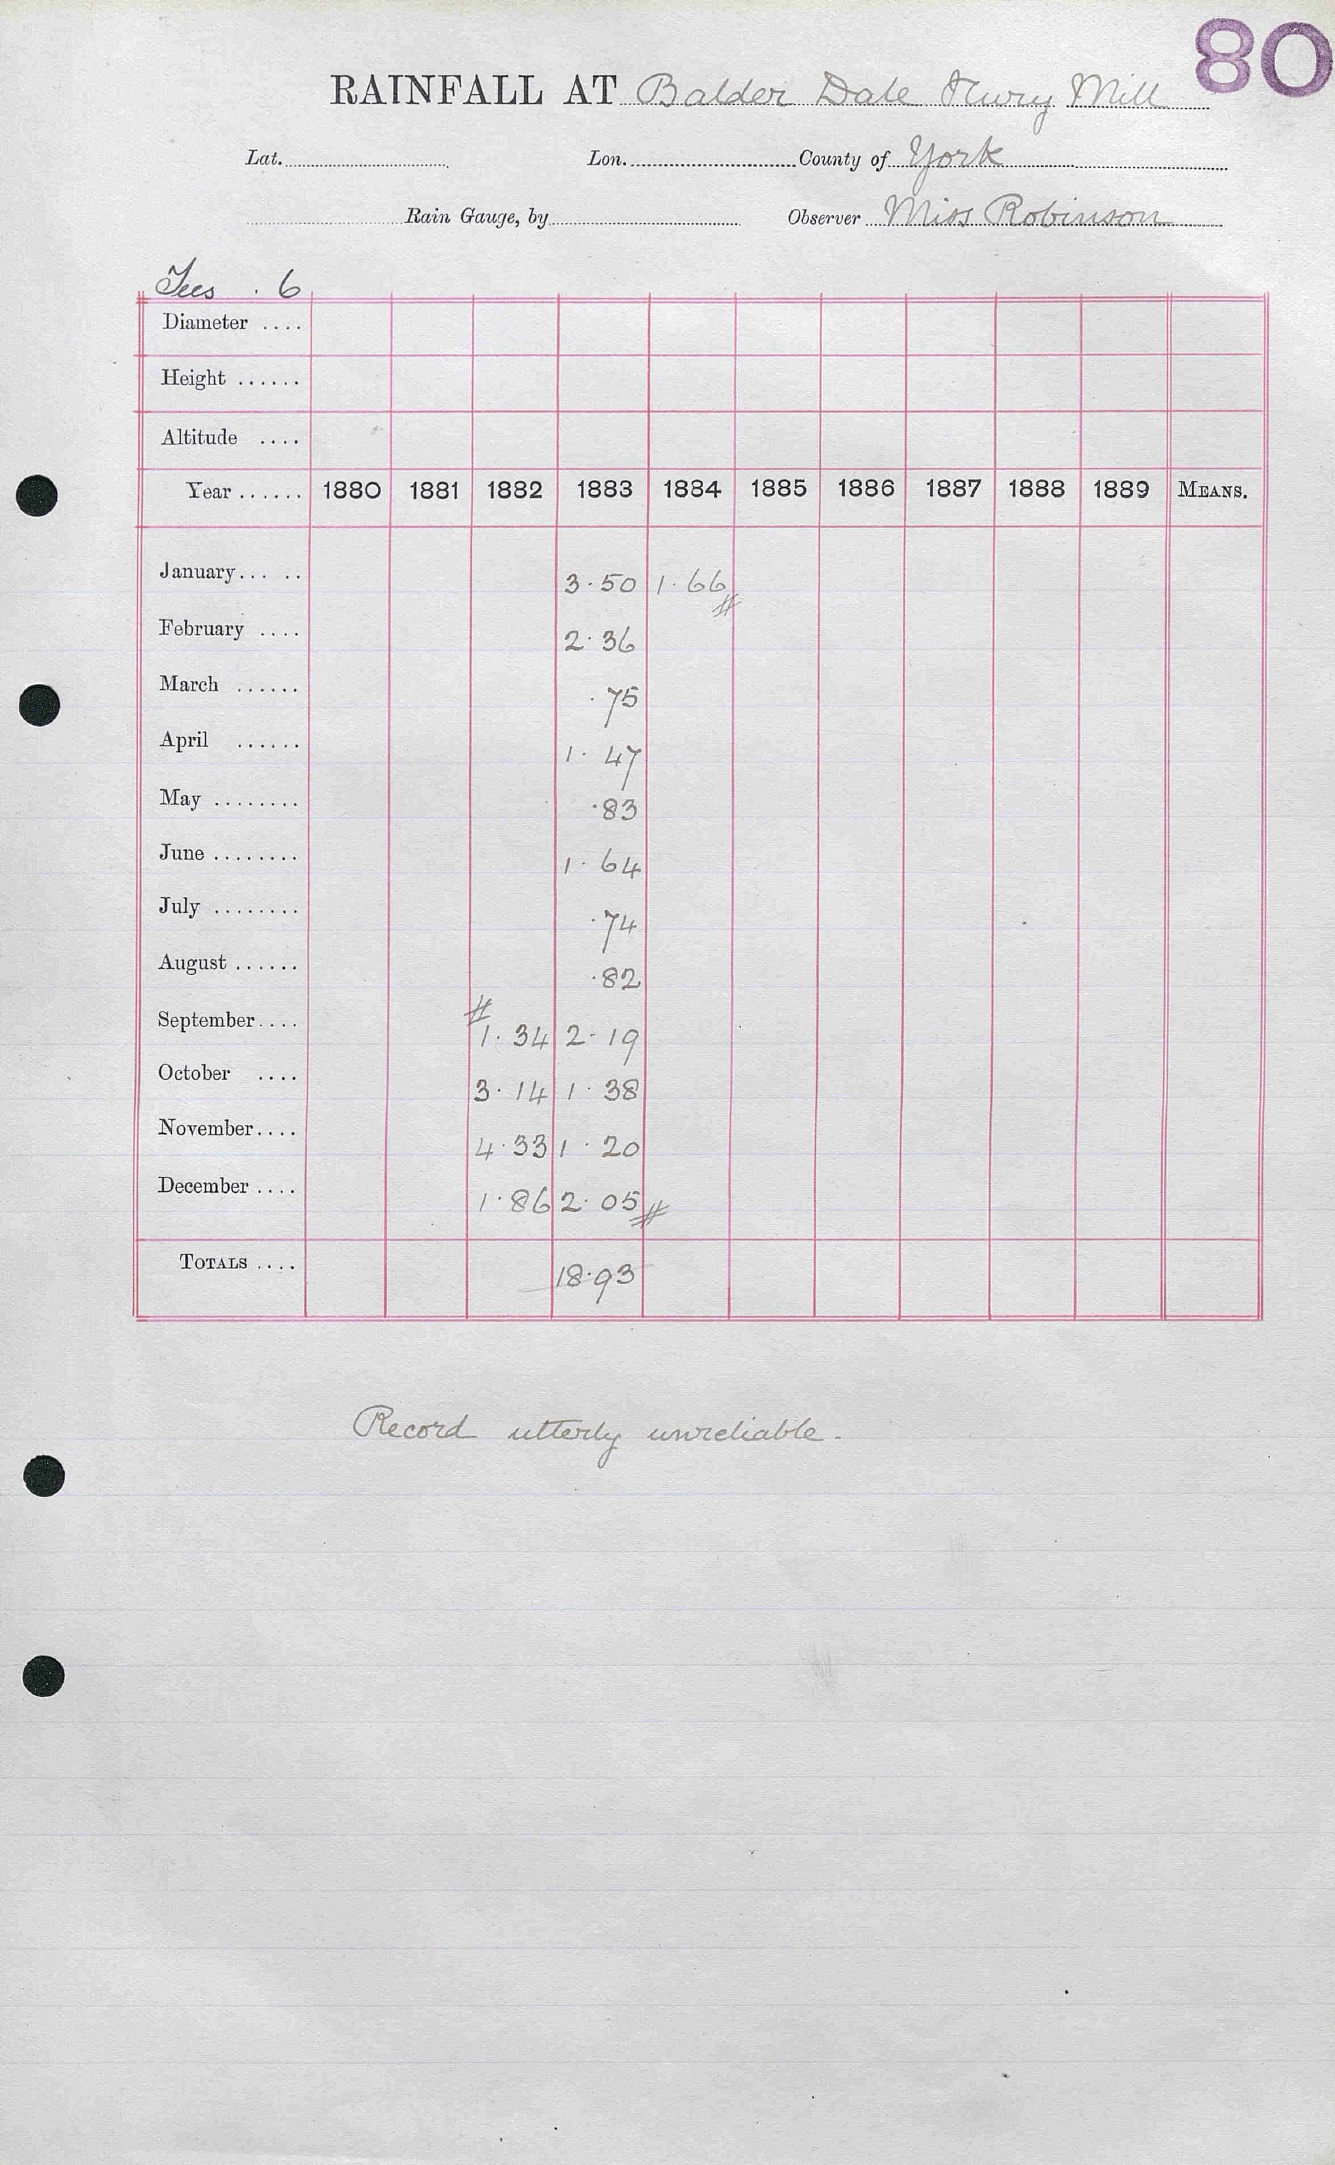 80
RAINFALL AT Balder Dale Hury Mill
Lat. Lon. County of York
Rain Gauge, by Observer Miss Robinson
Tees . 6
Diameter ....
Height ......
Altitude ....
Year ...... 1880 1881 1882 1883 1884 1885 1886 1887 1888 1889 MEANS.
January... .. 3.50 1.66 #
February .... 2.36
March ...... .75
April ...... 1.47
May ........ .83
June ........ 1.64
July ........ .74
August ...... .82
September.... # 1.34 2.19
October .... 3.14 1.38
November.... 4.33 1.20
December .... 1.86 2.05 #
TOTALS .... 18.93
Record utterly unreliable.